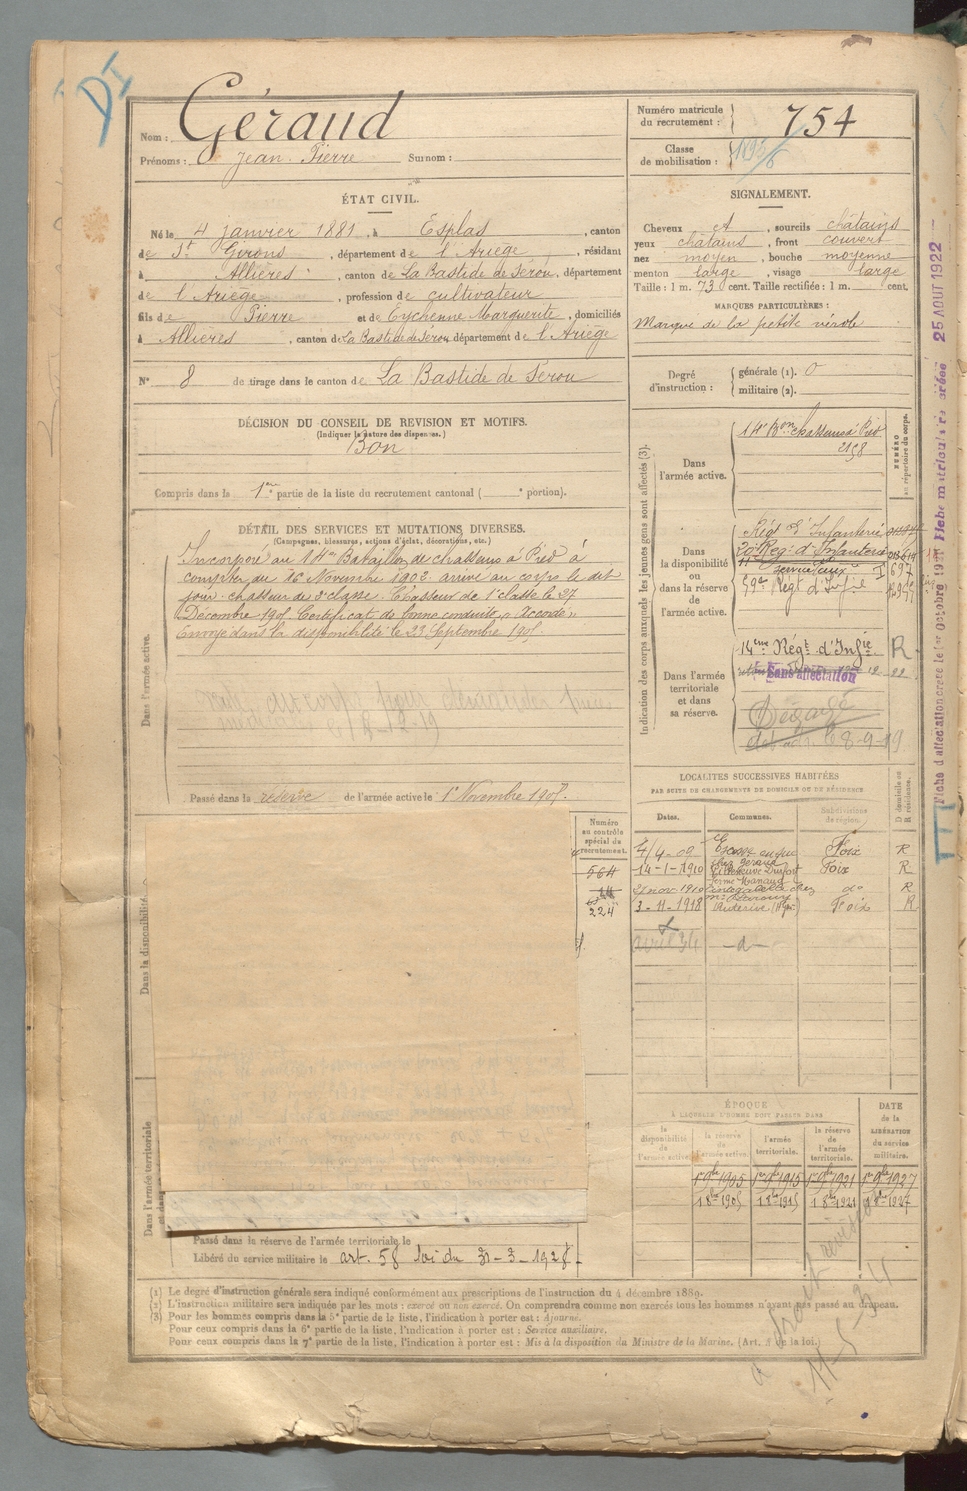 Nom : Géraud
Prénoms : Jean Pierre Surnom :
ÉTAT CIVIL.
Né le 4 janvier 1881, à Esplas, canton
de St Girons, département de l'Ariège, résidant
à Allières, canton de La Bastide de Sérou, département
de l'Ariège, profession de cultivateur
fils de Pierre et de Eychenne Marguerite, domiciliés
à Allières, canton de La Bastide de Sérou département de l'Ariège
N° 8 de tirage dans le canton de La Bastide de Sérou
DÉCISION DU CONSEIL DE REVISION ET MOTIFS.
(Indiquer la nature des dispenses.)
Bon
Compris dans la 1re partie de la liste du recrutement cantonal ( e portion).
DÉTAIL DES SERVICES ET MUTATIONS DIVERSES.
(Campagnes, blessures, actions d'éclat, décorations, etc.)
Incorporé au 14e Bataillon de chasseurs à Pied à
compter du 16 Novembre 1902 arrivé au corps le dit
jour chasseur de 2e classe. Chasseur de 1e classe le 27
Décembre 1905. Certificat de bonne conduite « Accordé »
Envoyé dans la disponibilité le 23 Septembre 1905.
Dans l'armée active.
Passé dans la réserve de l'armée active le 1er Novembre 1905.
Dans la disponibilité
Dans l'armée territoriale
Numéro
au contrôle
spécial du
recrutement.
564
14
224
Passé dans la réserve de l'armée territoriale le
Libéré du service militaire le art. 58 loi du 31-3-1928
Numéro matricule
du recrutement : 754
Classe
de mobilisation :
SIGNALEMENT.
Cheveux et, sourcils châtains
yeux châtains, front couvert
nez moyen, bouche moyenne
menton large, visage large
Taille : 1 m. 73 cent. Taille rectifiée : 1 m. cent.
MARQUES PARTICULIÈRES :
Marque de la petite vérole
Degré
d'instruction :
générale (1). 0
militaire (2).
Indication des corps auxquels les jeunes gens sont affectés (3).
NUMÉRO
au répertoire du corps.
Dans
l'armée active.
14e Bon chasseurs à Pied
2158
Dans
la disponibilité
ou
dans la réserve
de
l'armée active.
Régt d'Infanterie
20e Régt d'Infanterie
I 697
59e Régt d'Infie
Dans l'armée
territoriale
et dans
sa réserve.
14eme Régt d'Infie R
Sans affectation
Dégagé
8-9-19
LOCALITÉS SUCCESSIVES HABITÉES
PAR SUITE DE CHANGEMENTS DE DOMICILE OU DE RÉSIDENCE
Dates. Communes. Subdivisions
de région.
D domicile ou
R résidence.
4/4-09 Foix R
14-1-1910 Foix R
21 nov. 1910 do R
3-11-1918 Foix R
avril 34 -d-
ÉPOQUE
À LAQUELLE L'HOMME DOIT PASSER DANS
la
disponibilité
de l'armée active.
la réserve
de
l'armée active.
l'armée
territoriale.
la réserve
de
l'armée
territoriale.
DATE
de la
LIBÉRATION
du service
militaire.
1er 9bre 1905 1er 9bre 1915 1er 9bre 1921 1er 9bre 1927
1 8bre 1905 1 8bre 1915 1 8bre 1921 1 8bre 1927
(1) Le degré d'instruction générale sera indiqué conformément aux prescriptions de l'instruction du 4 décembre 1889.
(2) L'instruction militaire sera indiquée par les mots : exercé ou non exercé. On comprendra comme non exercés tous les hommes n'ayant pas passé au drapeau.
(3) Pour les hommes compris dans la 5e partie de la liste, l'indication à porter est : Ajourné.
Pour ceux compris dans la 6e partie de la liste, l'indication à porter est : Service auxiliaire.
Pour ceux compris dans la 7e partie de la liste, l'indication à porter est : Mis à la disposition du Ministre de la Marine. (Art. 4 de la loi.)
11-5-34
25 AOUT 1922